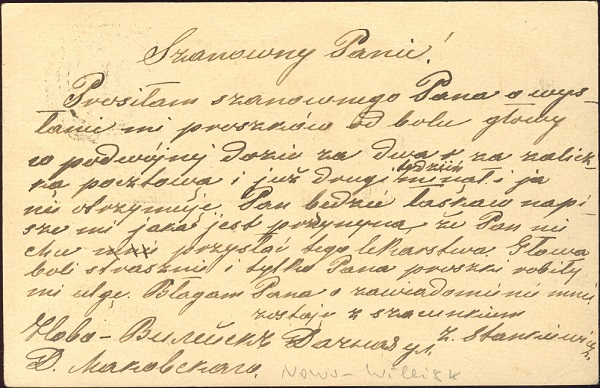 Szanowny Panie!
Prosiłam szanownego Pana o wys-
łanie mi proszków od bolu głowy
w podwójnej dozie za dwa r za zalicz-
ką pocztową i już drugi tydzień minął i ja
nie otrzymuję. Pan bedzie łaskaw napi-
sze mi jaka jest przyczyna, że Pan nie
chce przysłać tego lekarstwa. Głowa
boli strasznie i tylko Pana proszki robiły
mi ulgę. Błagam Pana o zawiadomienie mnie.
zostaję z szacunkiem
Z. Stankiewicz.
Ново-Вилейскъ Дачная ул.
Д. Маковскаго.
Nowo-Wilejsk